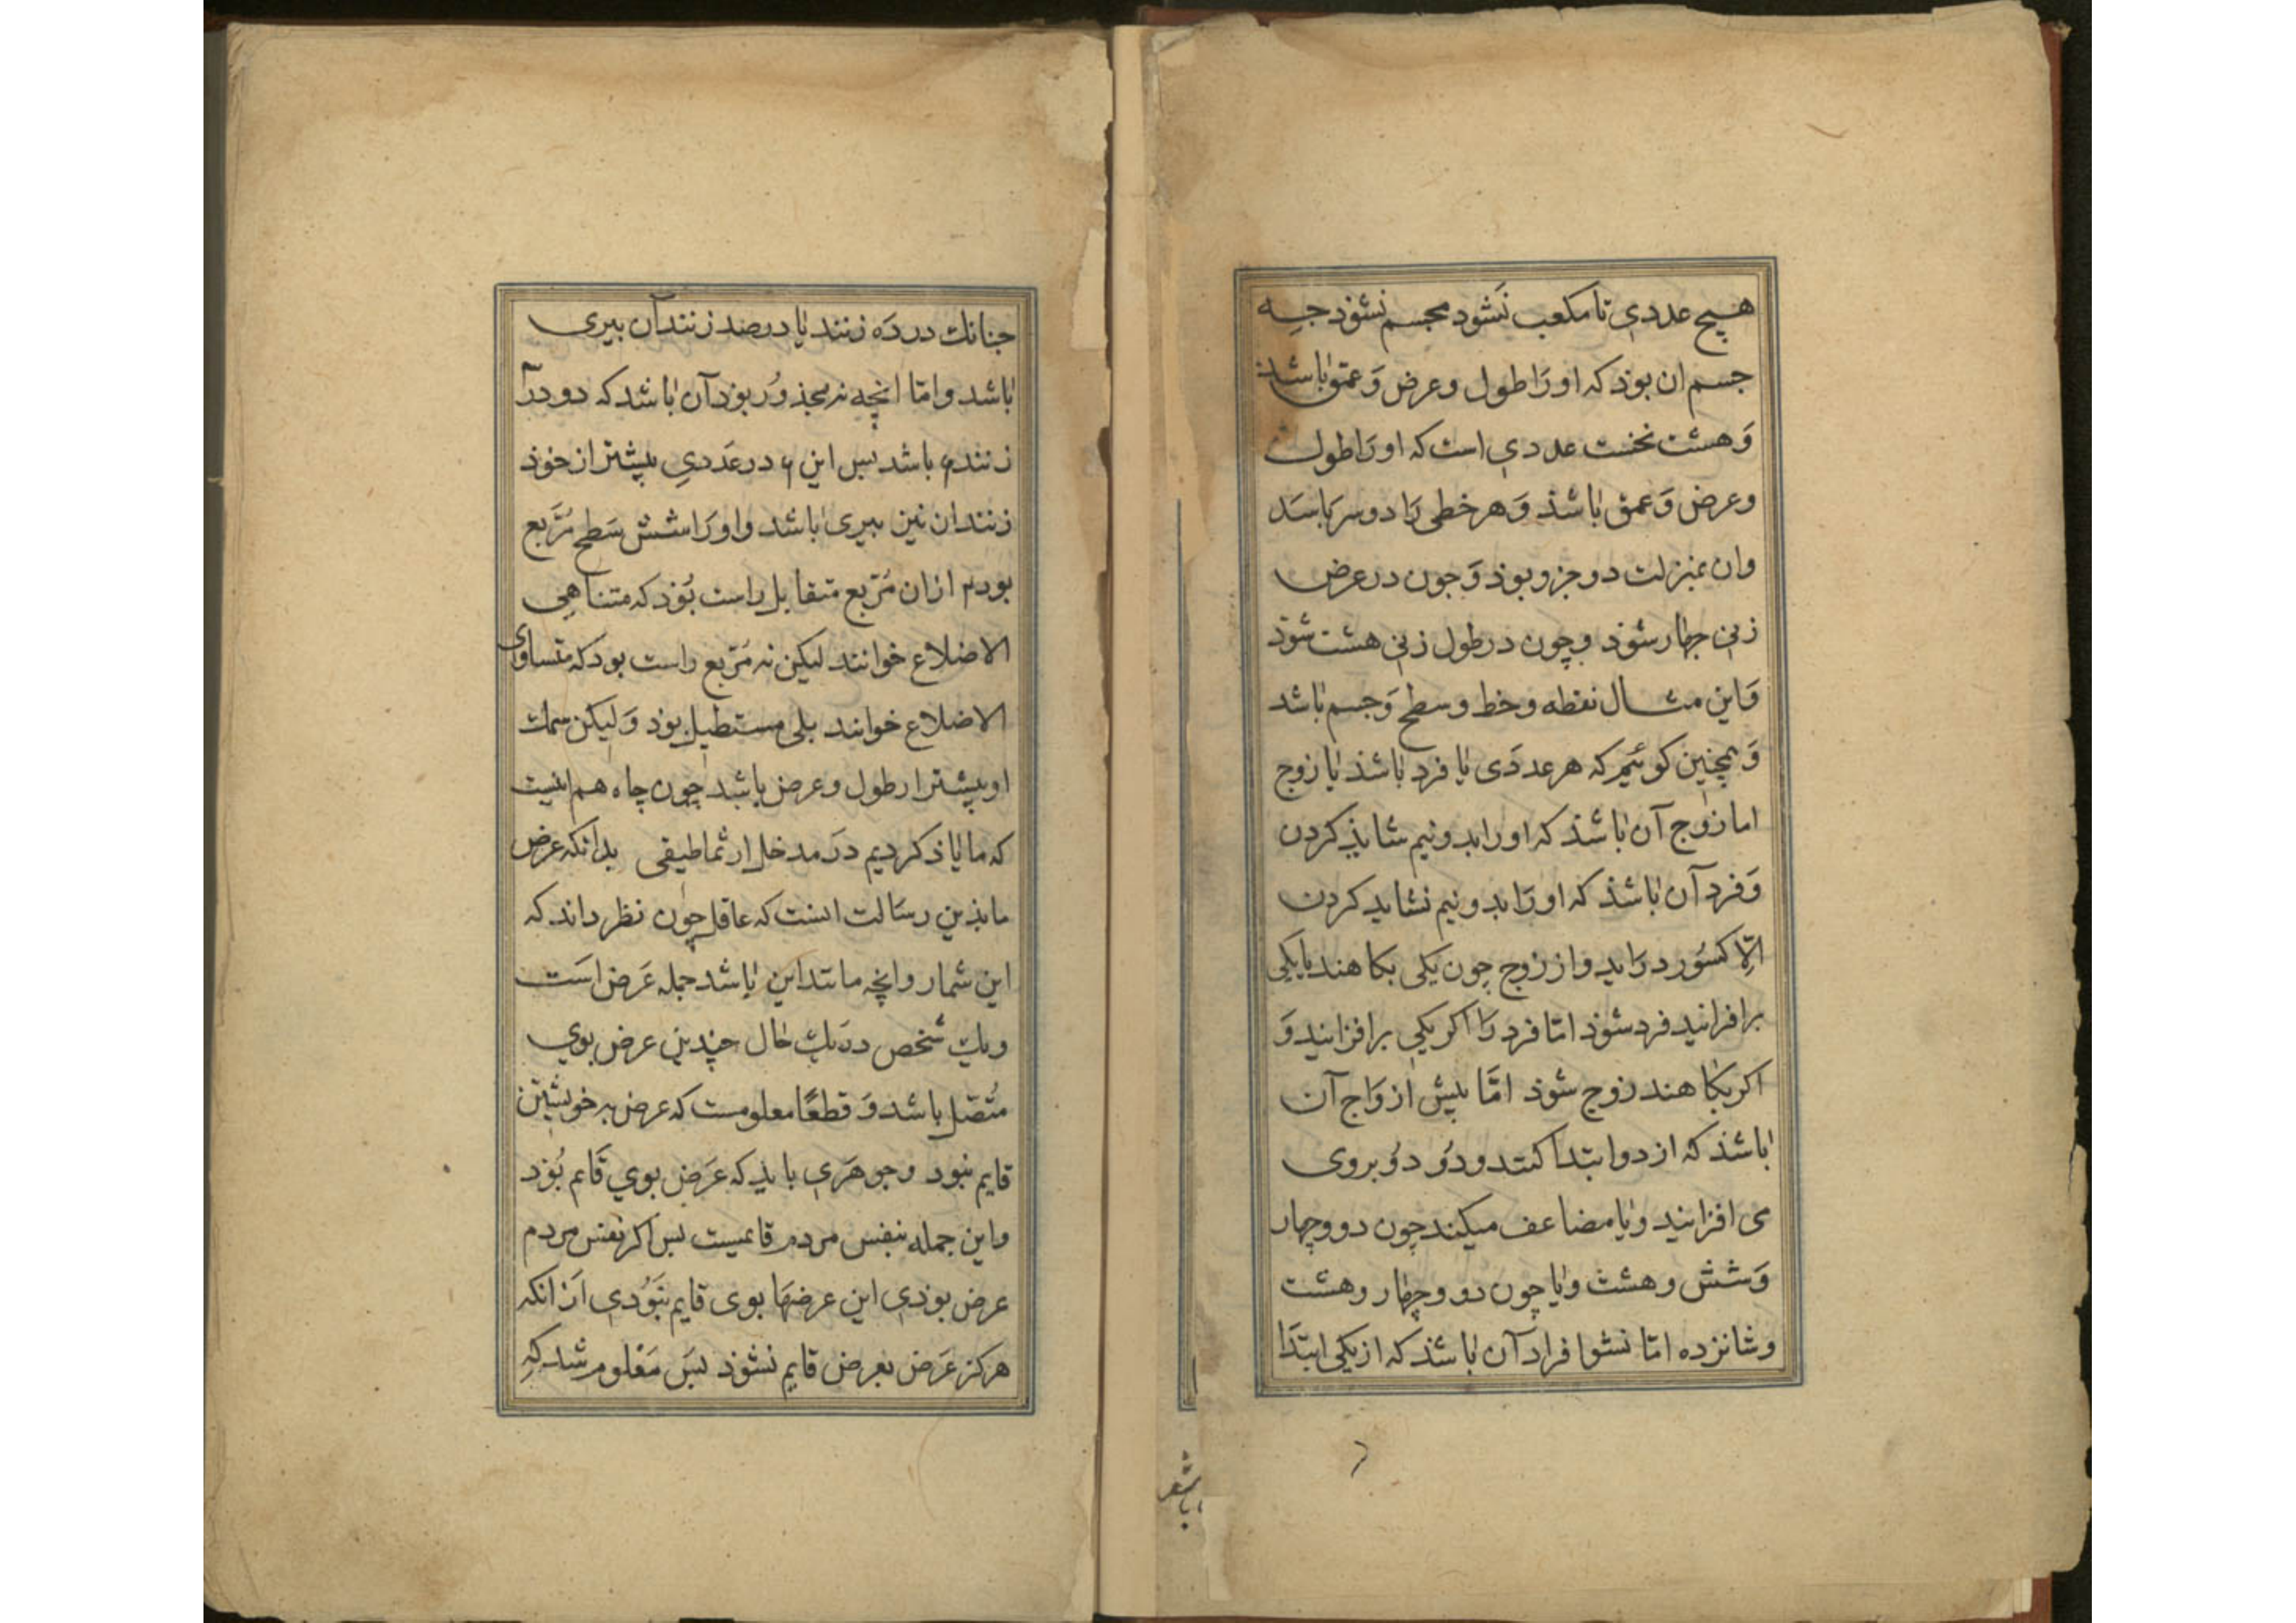 هیچ عددی تا مکعب نشود مجسم نشود جه
جسم ان بوذ که او رَا طول وعرض وَ عمق باشد
وَ هشت نخست عددی است که او رَا طول
وعرض وَ عمق باشذ وَ هر خطی رَا دو سر باسَد
وان بمنزلت دو جزو بوذ وَ جون در عرض
زنی جهار شوذ وچون در طول زنی هشت شوذ
وَاین مثال نقطه وخط وسطح وَجسم باشد
وَ همچنین کوئیم که هر عددَی یا فرد باشذ یا زوج
اما زوج آن باشذ که او را بدو نیم شایذ کردن
وَ فرد آن باشذ که او رَا بدو نیم نشاید کردن
الّا کسُور درَاید واز زوج چون یکی بکاهند یا یکی
برافزانید فرد شوذ امّا فرد رَا اکر یکی برافزانید وَ
اکر بکاهند زوج شوذ امَّا بیش ازوَاج آن
باشذ که از دو ابتدا کنند ودُو دُو بروی
می افزانید ویا مضاعف میکند چون دو وچهار
وَشش وهشت ویا چون دو وچهار وهشت
وشانزده امّا نشوا فراد آن باشذ که از یکی ابتدَا
جنانك در دَه زنند یا در صد زنند آن بیری
باشد وامّا انچه نه مجذوُر بوذ آن باشد که دو در
زنند ۶ باشد بس این ۶ در عَددیِ بیشتر از خوذ
زنند ان نیز بیری باشد واو رَا شش سَطح مُرَّبع
بود ازان مُرّبع متقابل راست بُوذ که متناهی
الاضلاع خوانند لیکن نه مُرّبع راست بود که متساوی
الاضلاع خوانند بلی مستطیل بوذ وَلیکن سمك
او بیشتر از طول وعرض باشد چون چاه هم اینست
که ما یاذ کردیم درَ مدخل ارثماطیقی بدانکه عرض
ما بذین رسَالت انست که عاقل چون نظر داند که
این شمار وانچه مانند این باشد جمله عَرض اسَت
ویك شخص دَه یك حال چندین عرض بوی
مُتصّل باشد وَ قطعًا معلومست که عرض به خویشتن
قایم نبود وجوهَری باید که عَرض بوی قَایم بُوذ
واین جمله بنفس مردم قایمست بس اکر نفس مردم
عرض بوذی این عرضهَا بوی قایم نبوُدی اَز انکه
هرکز عَرض بعرض قایم نشوذ بسَ مَعْلوم شد که